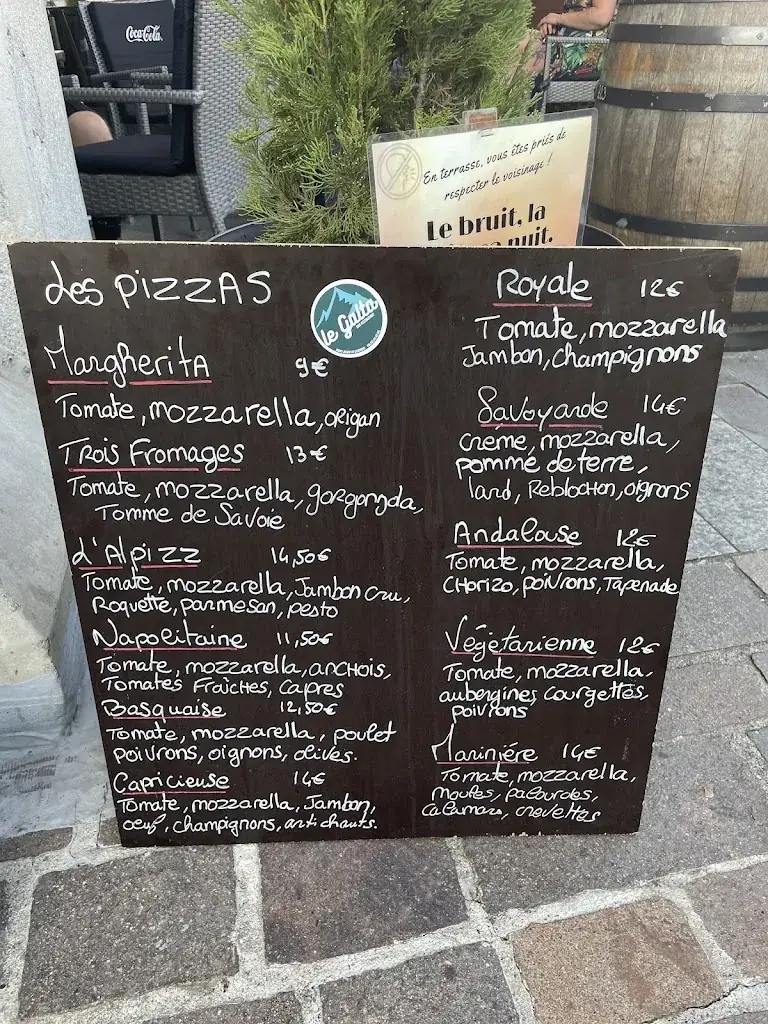 Coca-Cola
En terrasse, vous êtes priés de
respecter le voisinage !
Le bruit, la
nuit.
Les PIZZAS
le Galta
Margherita 9€
Tomate, mozzarella, origan
Trois Fromages 13€
Tomate, mozzarella, gorgonzda,
Tomme de Savoie
d'Alpizz 14,50€
Tomate, mozzarella, Jambon cru,
Roquette, parmesan, pesto
Napolitaine 11,50€
Tomate, mozzarella, anchois,
Tomates Fraîches, capres
Basquaise 12,50€
Tomate, mozzarella, poulet
poivrons, oignons, olives.
Capricieuse 14€
Tomate, mozzarella, Jambon,
oeuf, champignons, artichauts.
Royale 12€
Tomate, mozzarella
Jambon, champignons
Savoyarde 14€
crème, mozzarella,
pomme de terre,
lard, Reblochon, oignons
Andalouse 12€
Tomate, mozzarella,
chorizo, poivrons, Tapenade
Végétarienne 12€
Tomate, mozzarella,
aubergines, courgettes,
poivrons
Marinière 14€
Tomate, mozzarella,
moules, palourdes,
calamars, crevettes